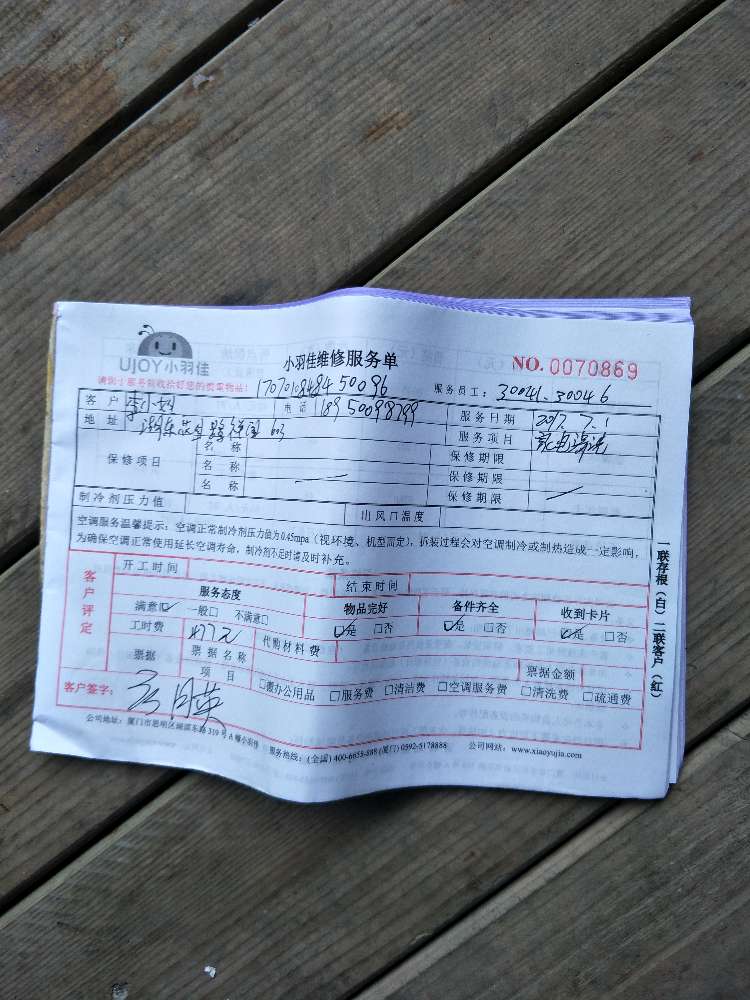 UJOY小羽佳
小羽佳维修服务单
NO. 0070869
请到 服务前收拾好您的贵重物品!
服务员工: 30041.30046
客户 李小姐 电话 18950098799 服务日期 2017.7.1
地址 服务项目 家电清洗
保修项目 名称 保修期限
名称 保修期限
名称 保修期限
制冷剂压力值 出风口温度
空调服务温馨提示:空调正常制冷剂压力值为0.45mpa(视环境、机型而定),拆装过程会对空调制冷或制热造成一定影响,
为确保空调正常使用延长空调寿命,制冷剂不足时请及时补充。
客户评定
开工时间 结束时间
服务态度 物品完好 备件齐全 收到卡片
满意☑ 一般□ 不满意□ ☑是 □否 ☑是 □否 ☑是 □否
工时费 477元 代购材料费
票据 票据名称 票据金额
项目 □搬办公用品 □服务费 □清洁费 □空调服务费 □清洗费 □疏通费
客户签字:
公司地址:厦门市思明区湖滨东路319号A幢小羽佳 服务热线:(全国)400-6658-888 (厦门) 0592-5178888 公司网站:www.xiaoyujia.com
一联存根(白)二联客户(红)